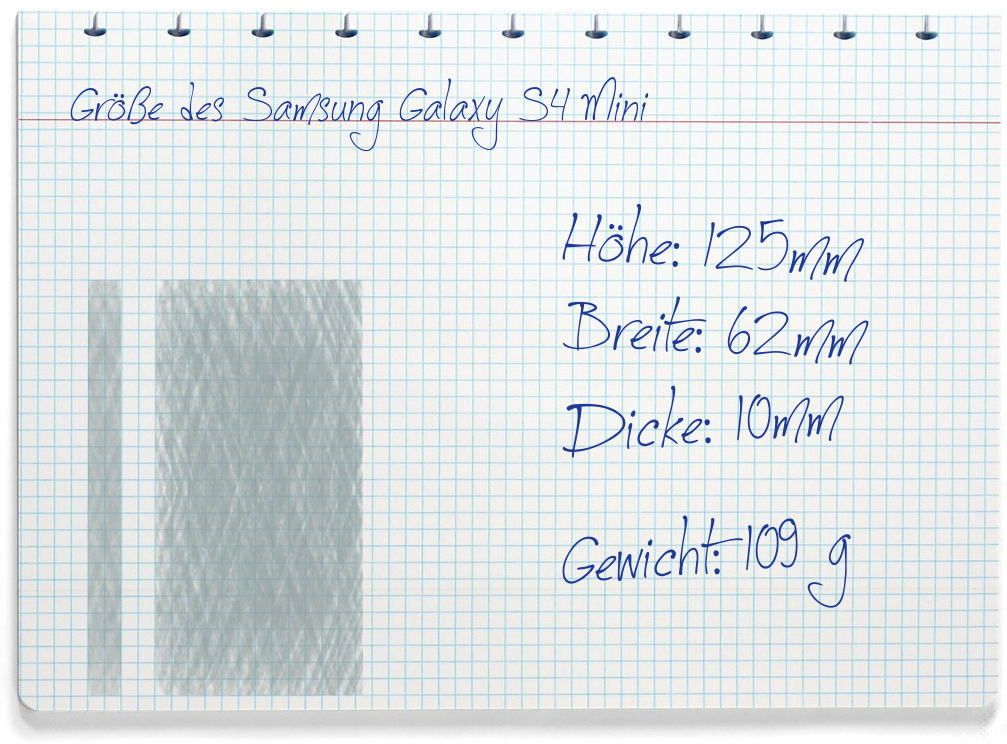 Größe des Samsung Galaxy S4 Mini
Höhe: 125mm
Breite: 62mm
Dicke: 10mm
Gewicht: 109 g